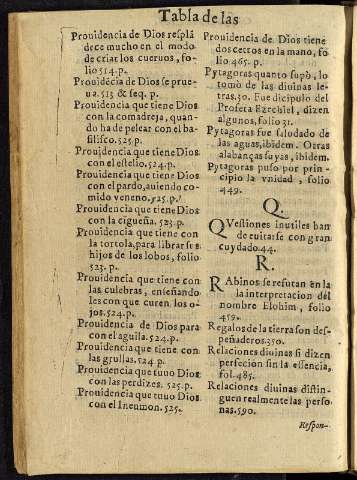 Tabla de las
Prouidencia de Dios resplã
dece mucho en el modo
de criar los cueruos, fo-
lio 514. p.
Prouidẽcia de Dios se prue-
ua. 513 & seq. p.
Prouidencia que tiene Dios
con la comadreja, quan-
do ha de pelear con el ba-
silisco. 525. p.
Prouidencia que tiene Dios
con el estelio. 524. p.
Prouidencia que tiene Dios
con el pardo, auiendo co-
mido veneno. 525. p.
Prouidencia que tiene Dios
con la cigueña. 523. p.
Prouidencia que tiene con
la tortola, para librar sus
hijos de los lobos, folio
523. p.
Prouidencia que tiene con
las culebras, enseñando
les con que curen los o-
jos. 524. p.
Prouidencia de Dios para
con el aguila. 524. p.
Prouidencia que tiene con
las grullas. 524 p.
Prouidencia que tuuo Dios
con las perdizes. 525. p.
Prouidencia que tuuo Dios
con el Ineumon. 525.
Prouidencia de Dios tiene
dos cetros en la mano, fo
lio 465. p.
Pytagoras quanto supo, lo
tomò de las diuinas le-
tras. 30. Fue dicipulo del
Profeta Ezechiel, dizen
algunos, folio 31.
Pytagoras fue saludado de
las aguas, ibidem. Otras
alabanças suyas, ibidem.
Pytagoras puso por prin-
cipio la vnidad, folio
449.
Q.
QVestiones inutiles han
de euitarse con gran
cuydado. 44.
R.
RAbinos se refutan en la
la interpretacion del
nombre Elohim, folio
459.
Regalos de la tierra son des-
peñaderos. 350.
Relaciones diuinas si dizen
perfeciõn sin la essencia,
fol. 485.
Relaciones diuinas distin-
guen realmente las perso
nas. 590.
Respon-